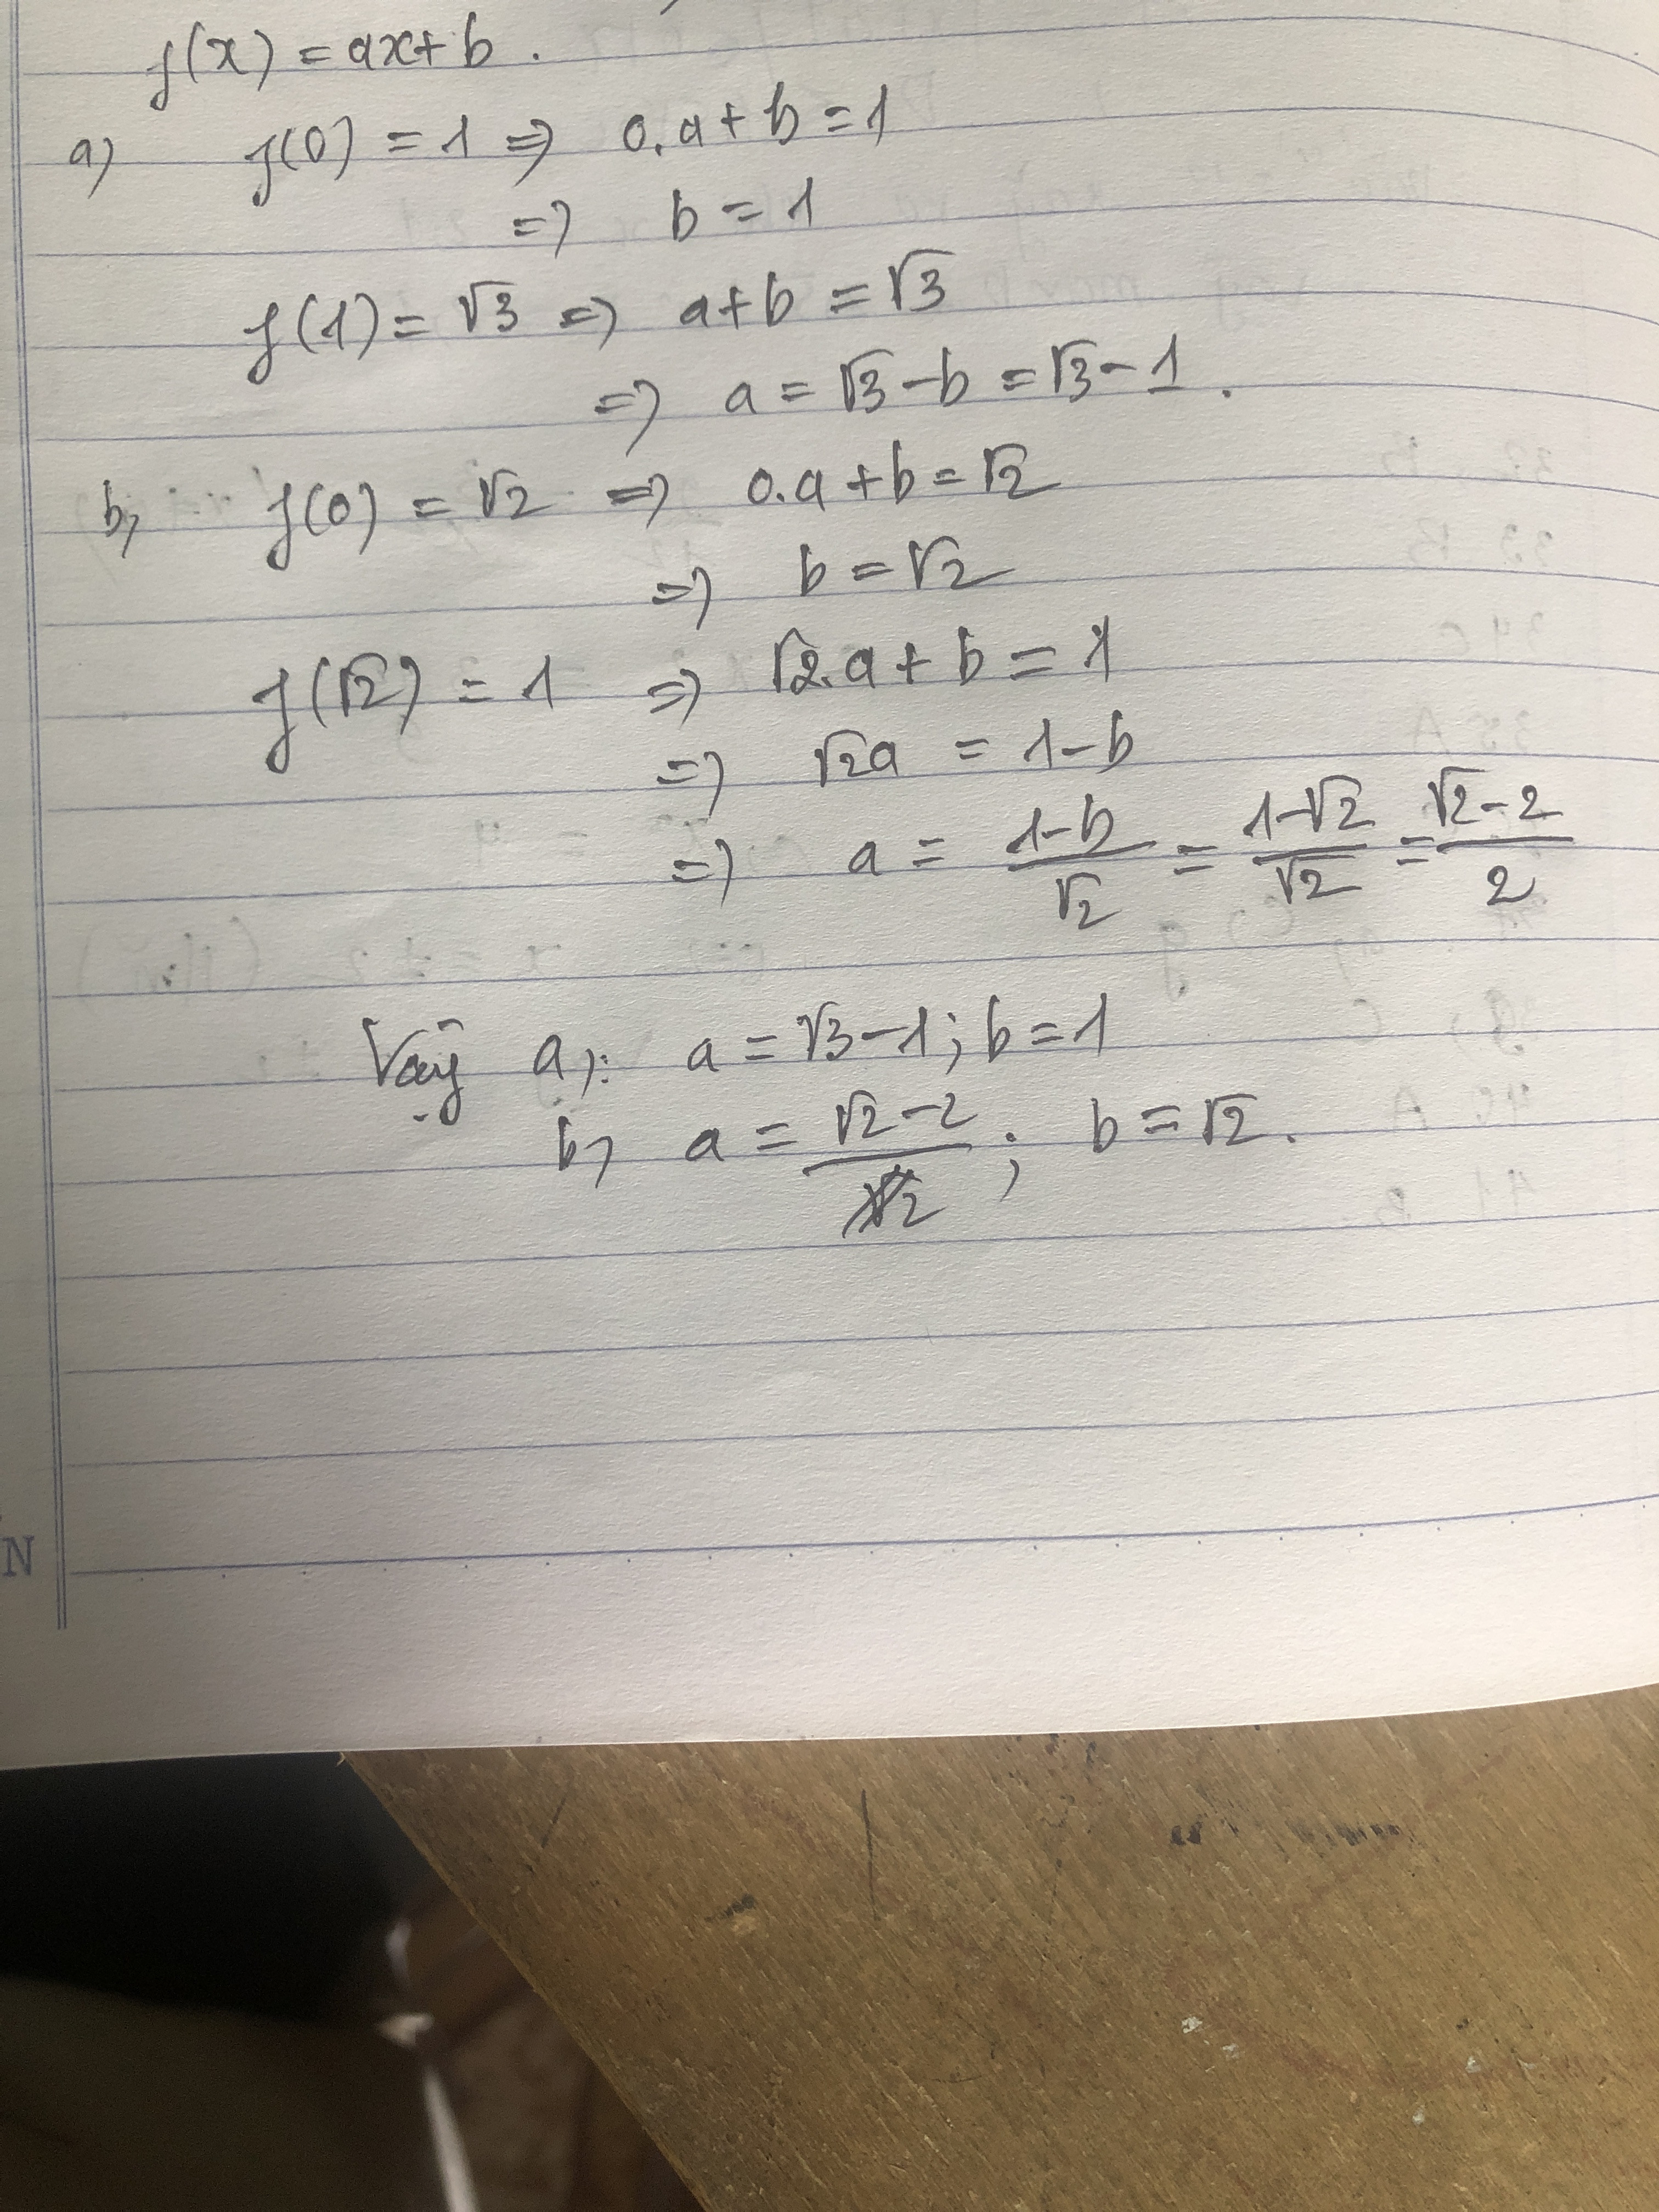 f(x) = ax + b.
a) f(0) = 1 => 0.a + b = 1
=> b = 1
f(1) = √3 => a + b = √3
=> a = √3 - b = √3 - 1.
b, f(0) = √2 => 0.a + b = √2
=> b = √2
f(√2) = 1 => √2.a + b = 1
=> √2a = 1 - b
=> a = (1-b)/√2 = (1-√2)/√2 = (√2-2)/2
Vậy a): a = √3 - 1; b = 1
b, a = (√2-2)/2; b = √2.
N